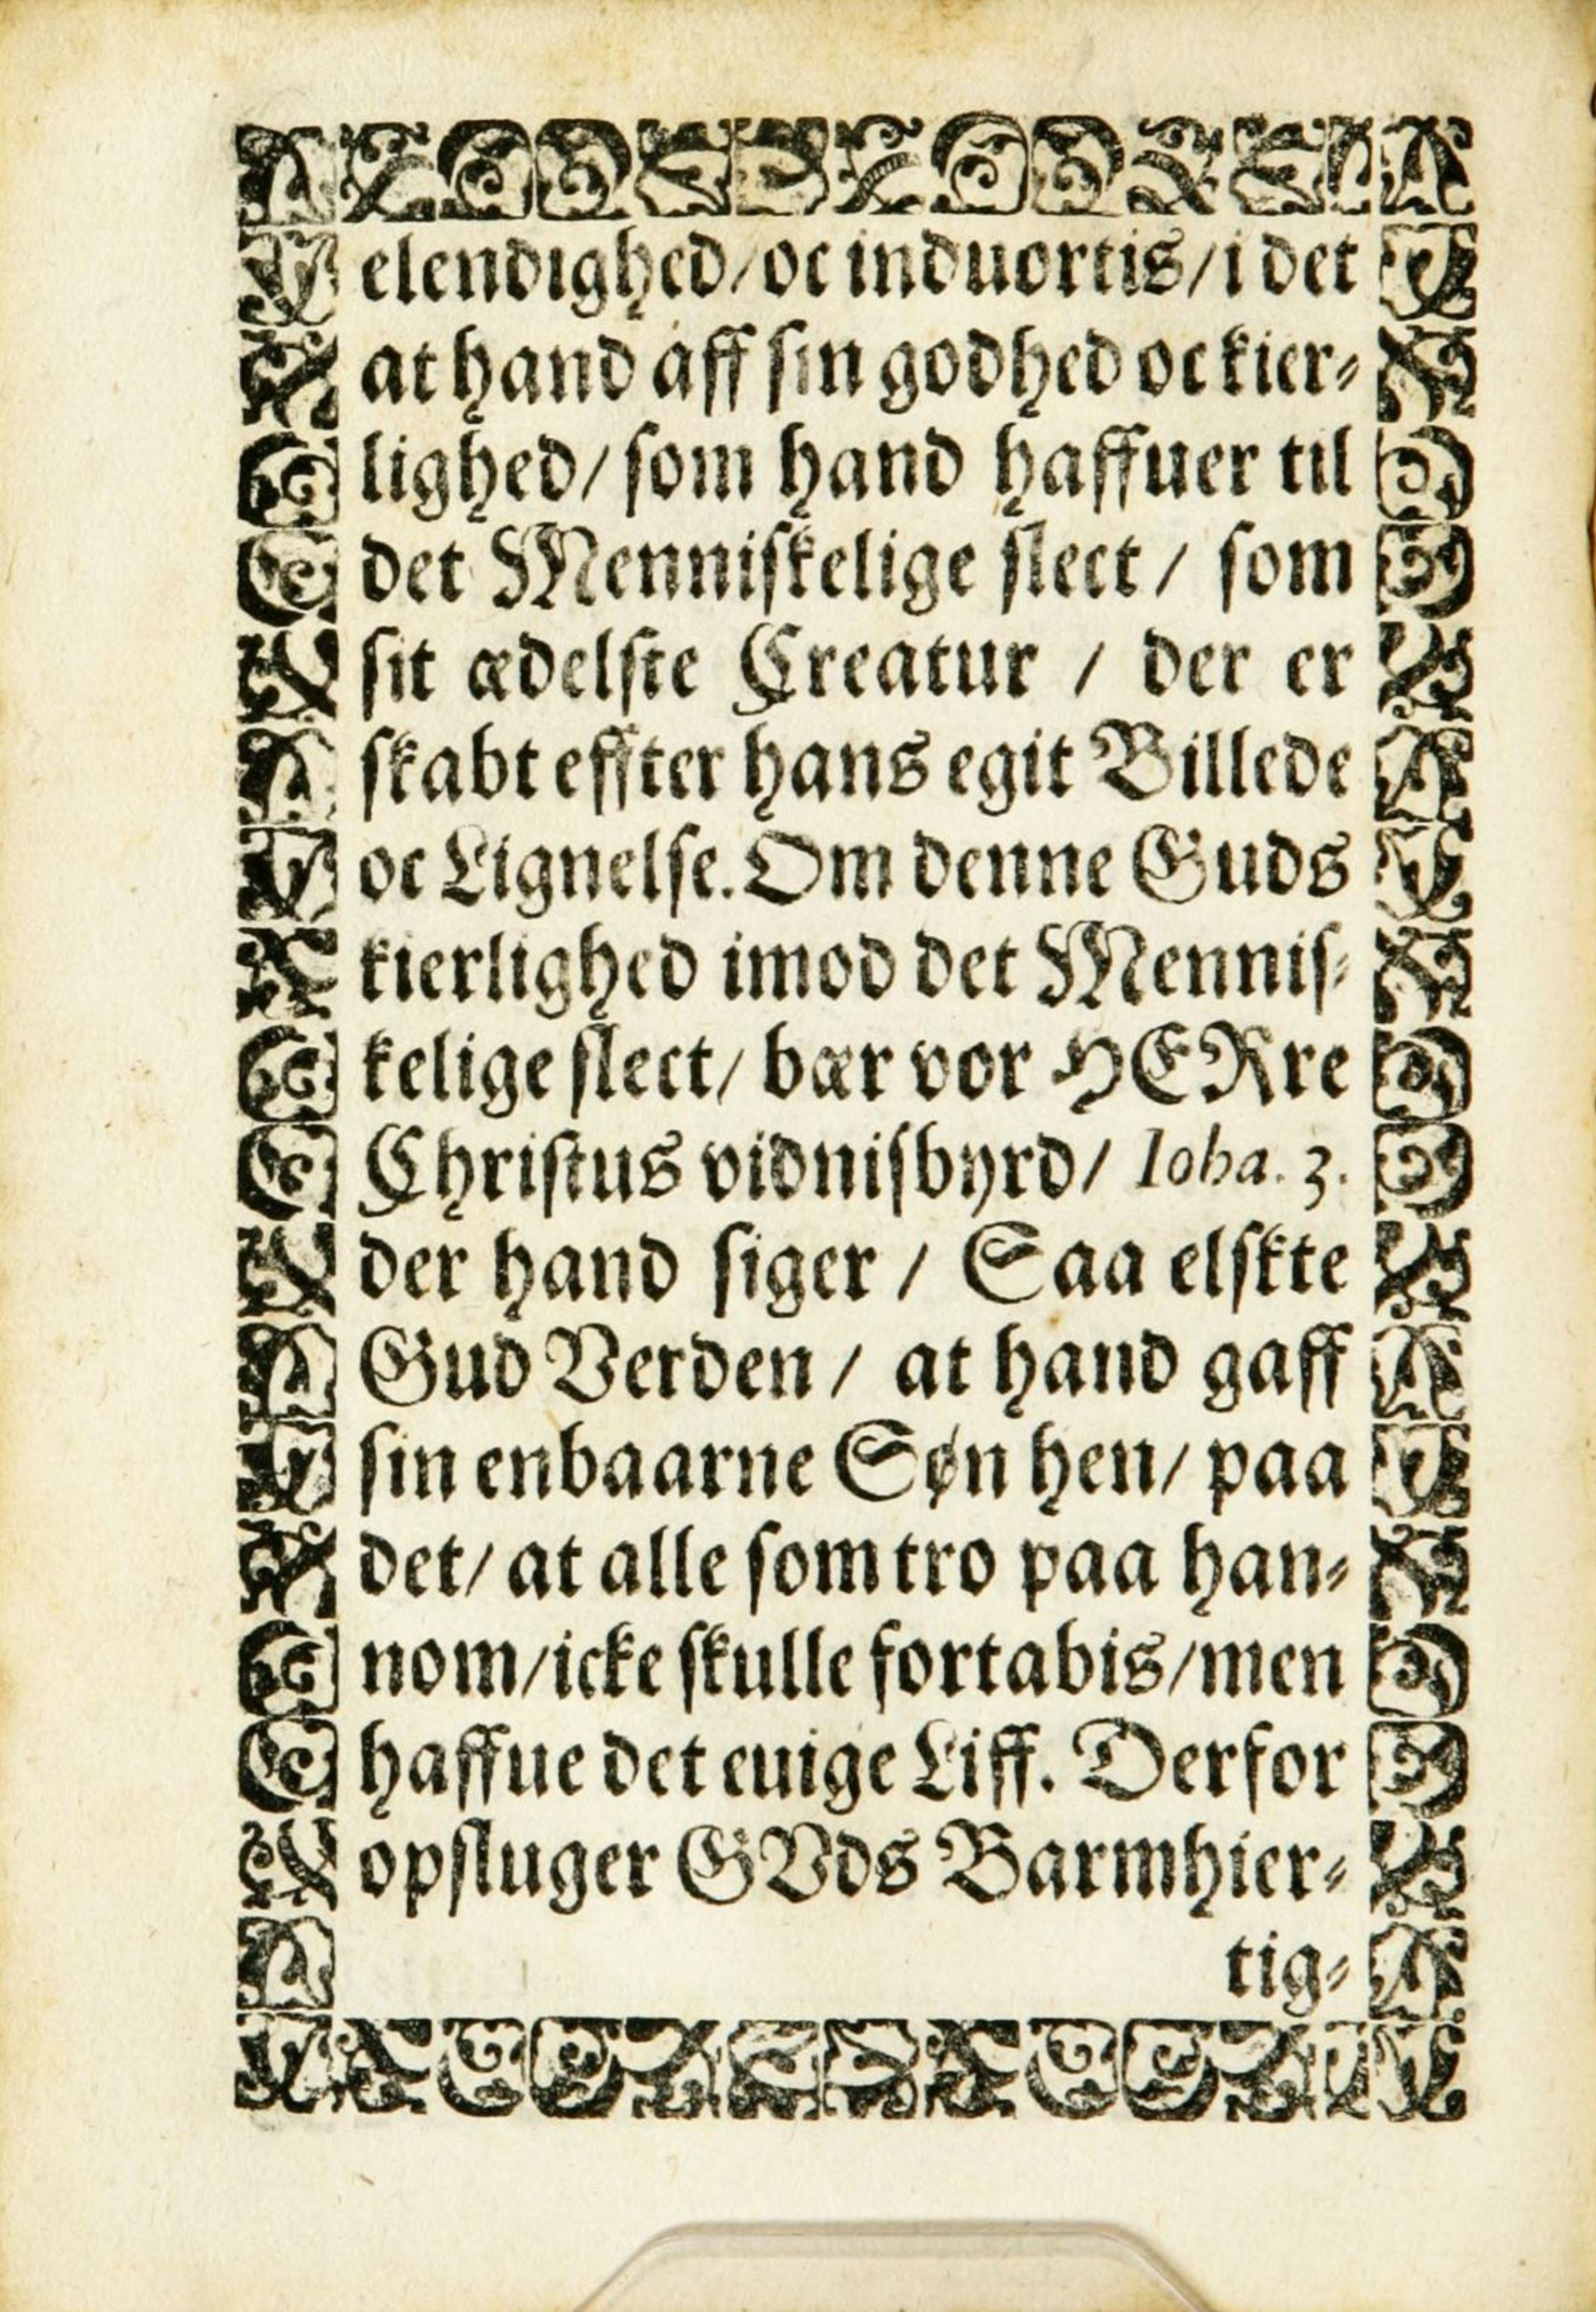 elendighed/oc induortis/i det
at hand aff sin godhed oc kier-
lighed/som hand haffuer til
det Menniskelige slect / som
sit ædelste Creatur / der er
skabt effter hans egit Billede
oc Lignelse. Om denne Guds
kierlighed imod det Mennis-
kelige slect/ bær vor HERre
Christus vidnisbyrd/ Ioha. 3.
der hand siger / Saa elskte
Gud Verden / at hand gaff
sin enbaarne Søn hen/ paa
det/ at alle som tro paa han-
nom/icke skulle fortabis/men
haffue det euige Liff. Derfor
opsluger GVds Barmhier-
tig-